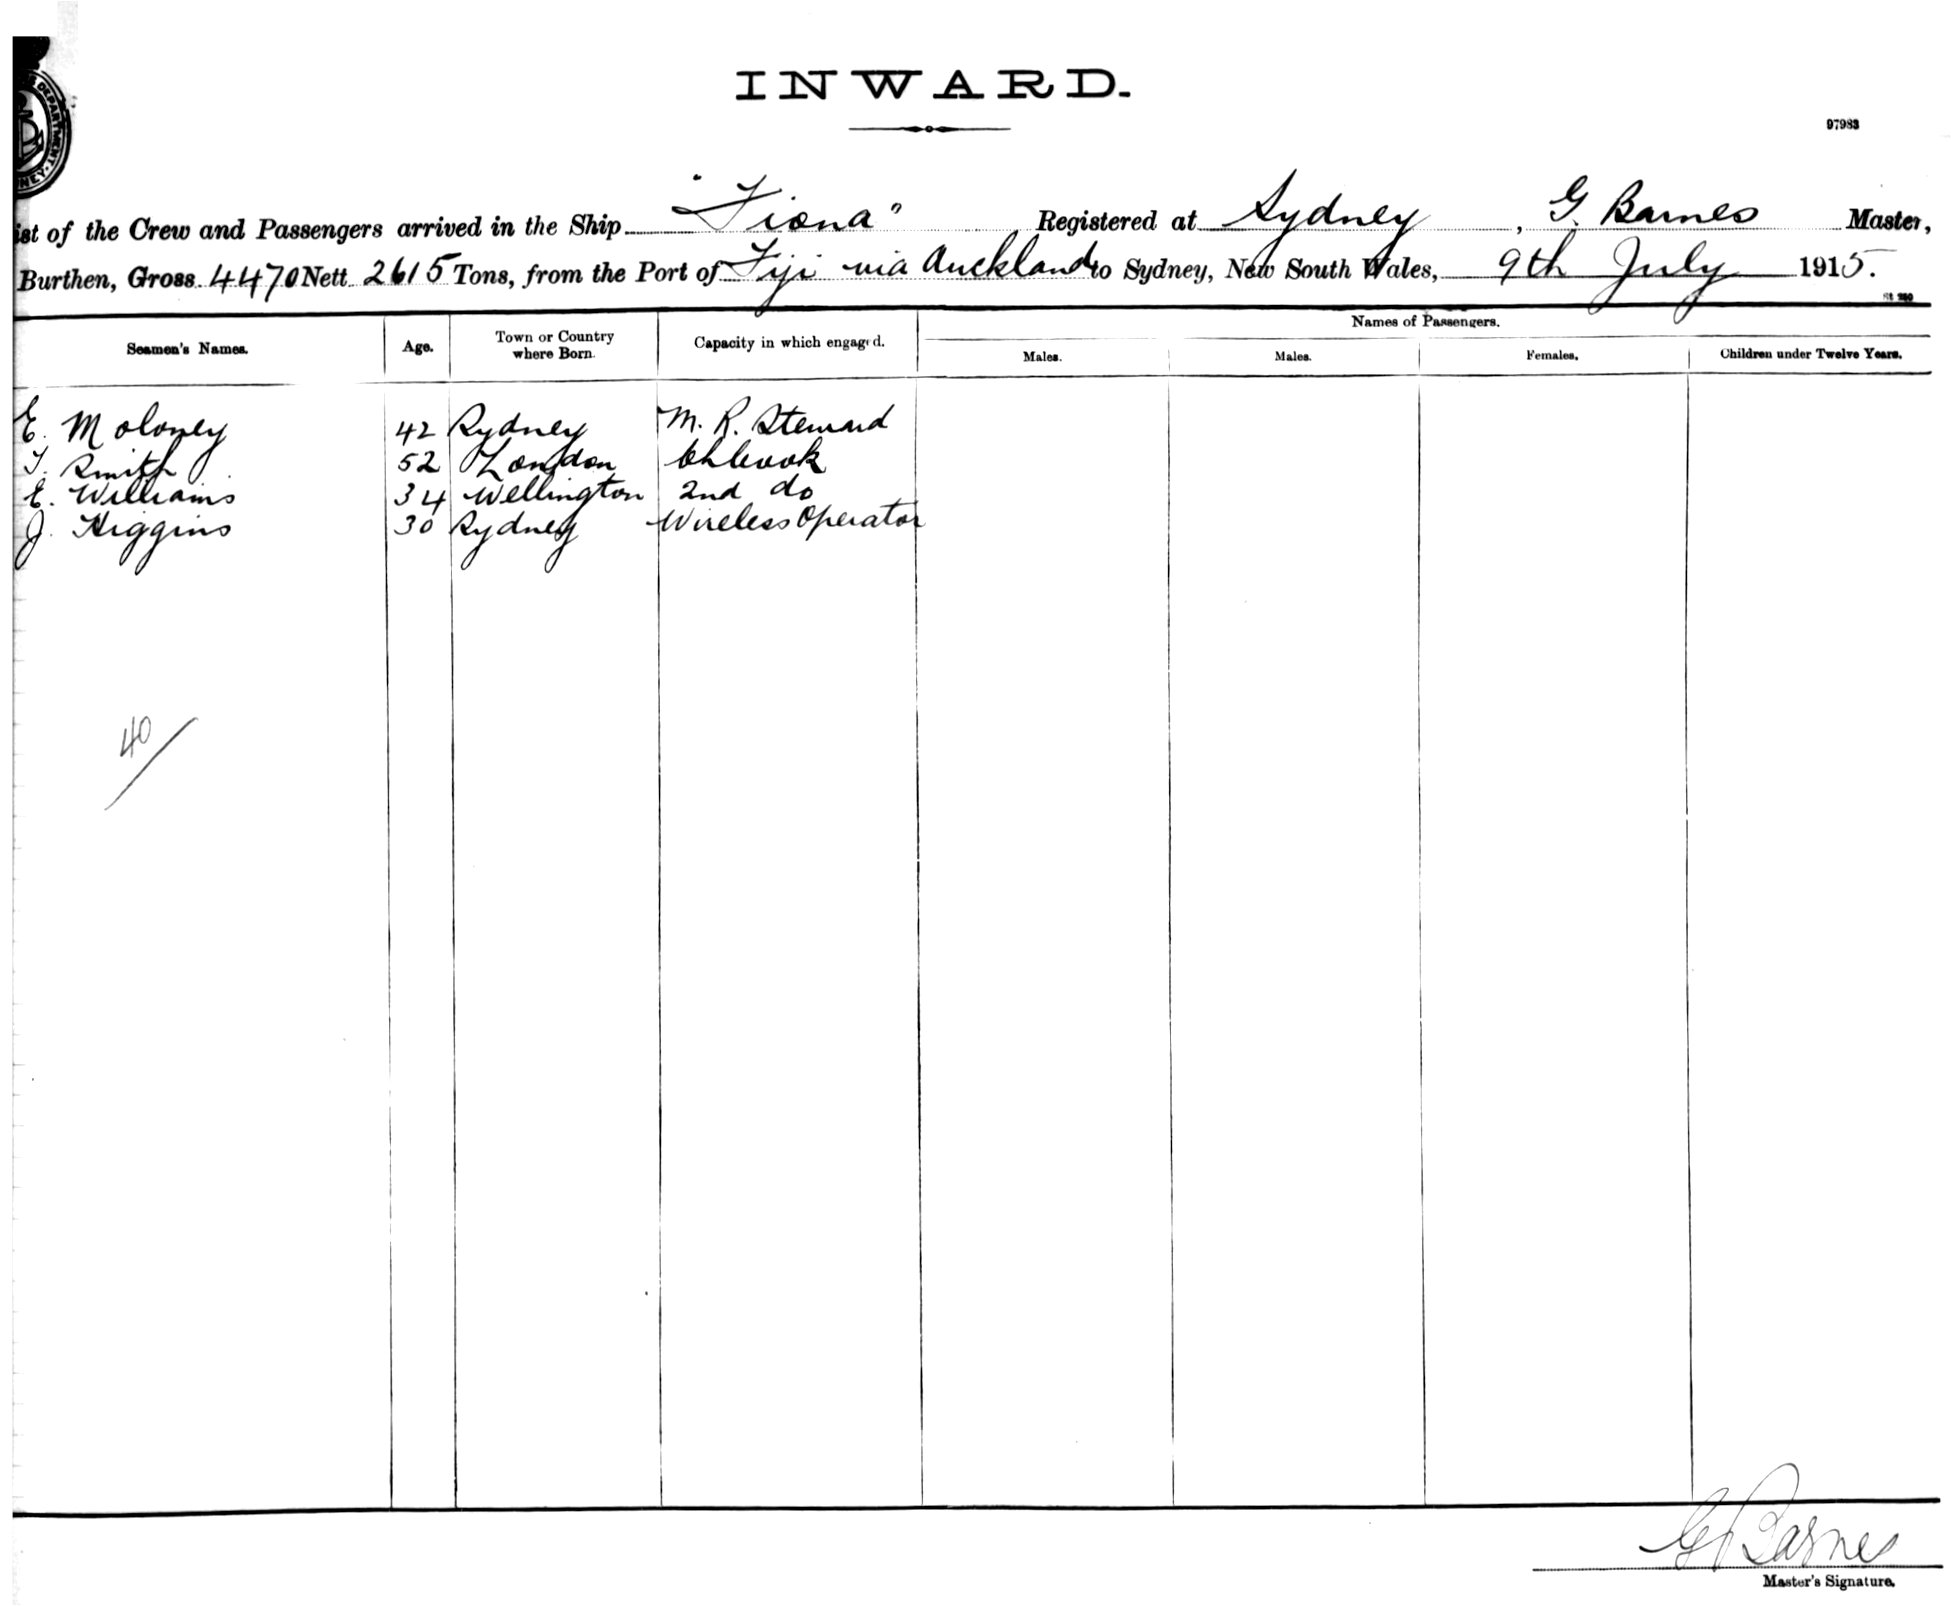 INWARD.
97983
DEPARTMENT.
ist of the Crew and Passengers arrived in the Ship "Fiona" Registered at Sydney, G. Barnes Master,
Burthen, Gross 4470 Nett 2615 Tons, from the Port of Fiji via Auckland to Sydney, New South Wales, 9th July 1915.
Seamen's Names. Age. Town or Country where Born. Capacity in which engaged. Names of Passengers.
Males. Males. Females. Children under Twelve Years.
E. Moloney 42 Sydney M. R. Steward
T. Smith 52 London Ch Cook
E. Williams 34 Wellington 2nd do
J. Higgins 30 Sydney Wireless Operator
40
G Barnes
Master's Signature.